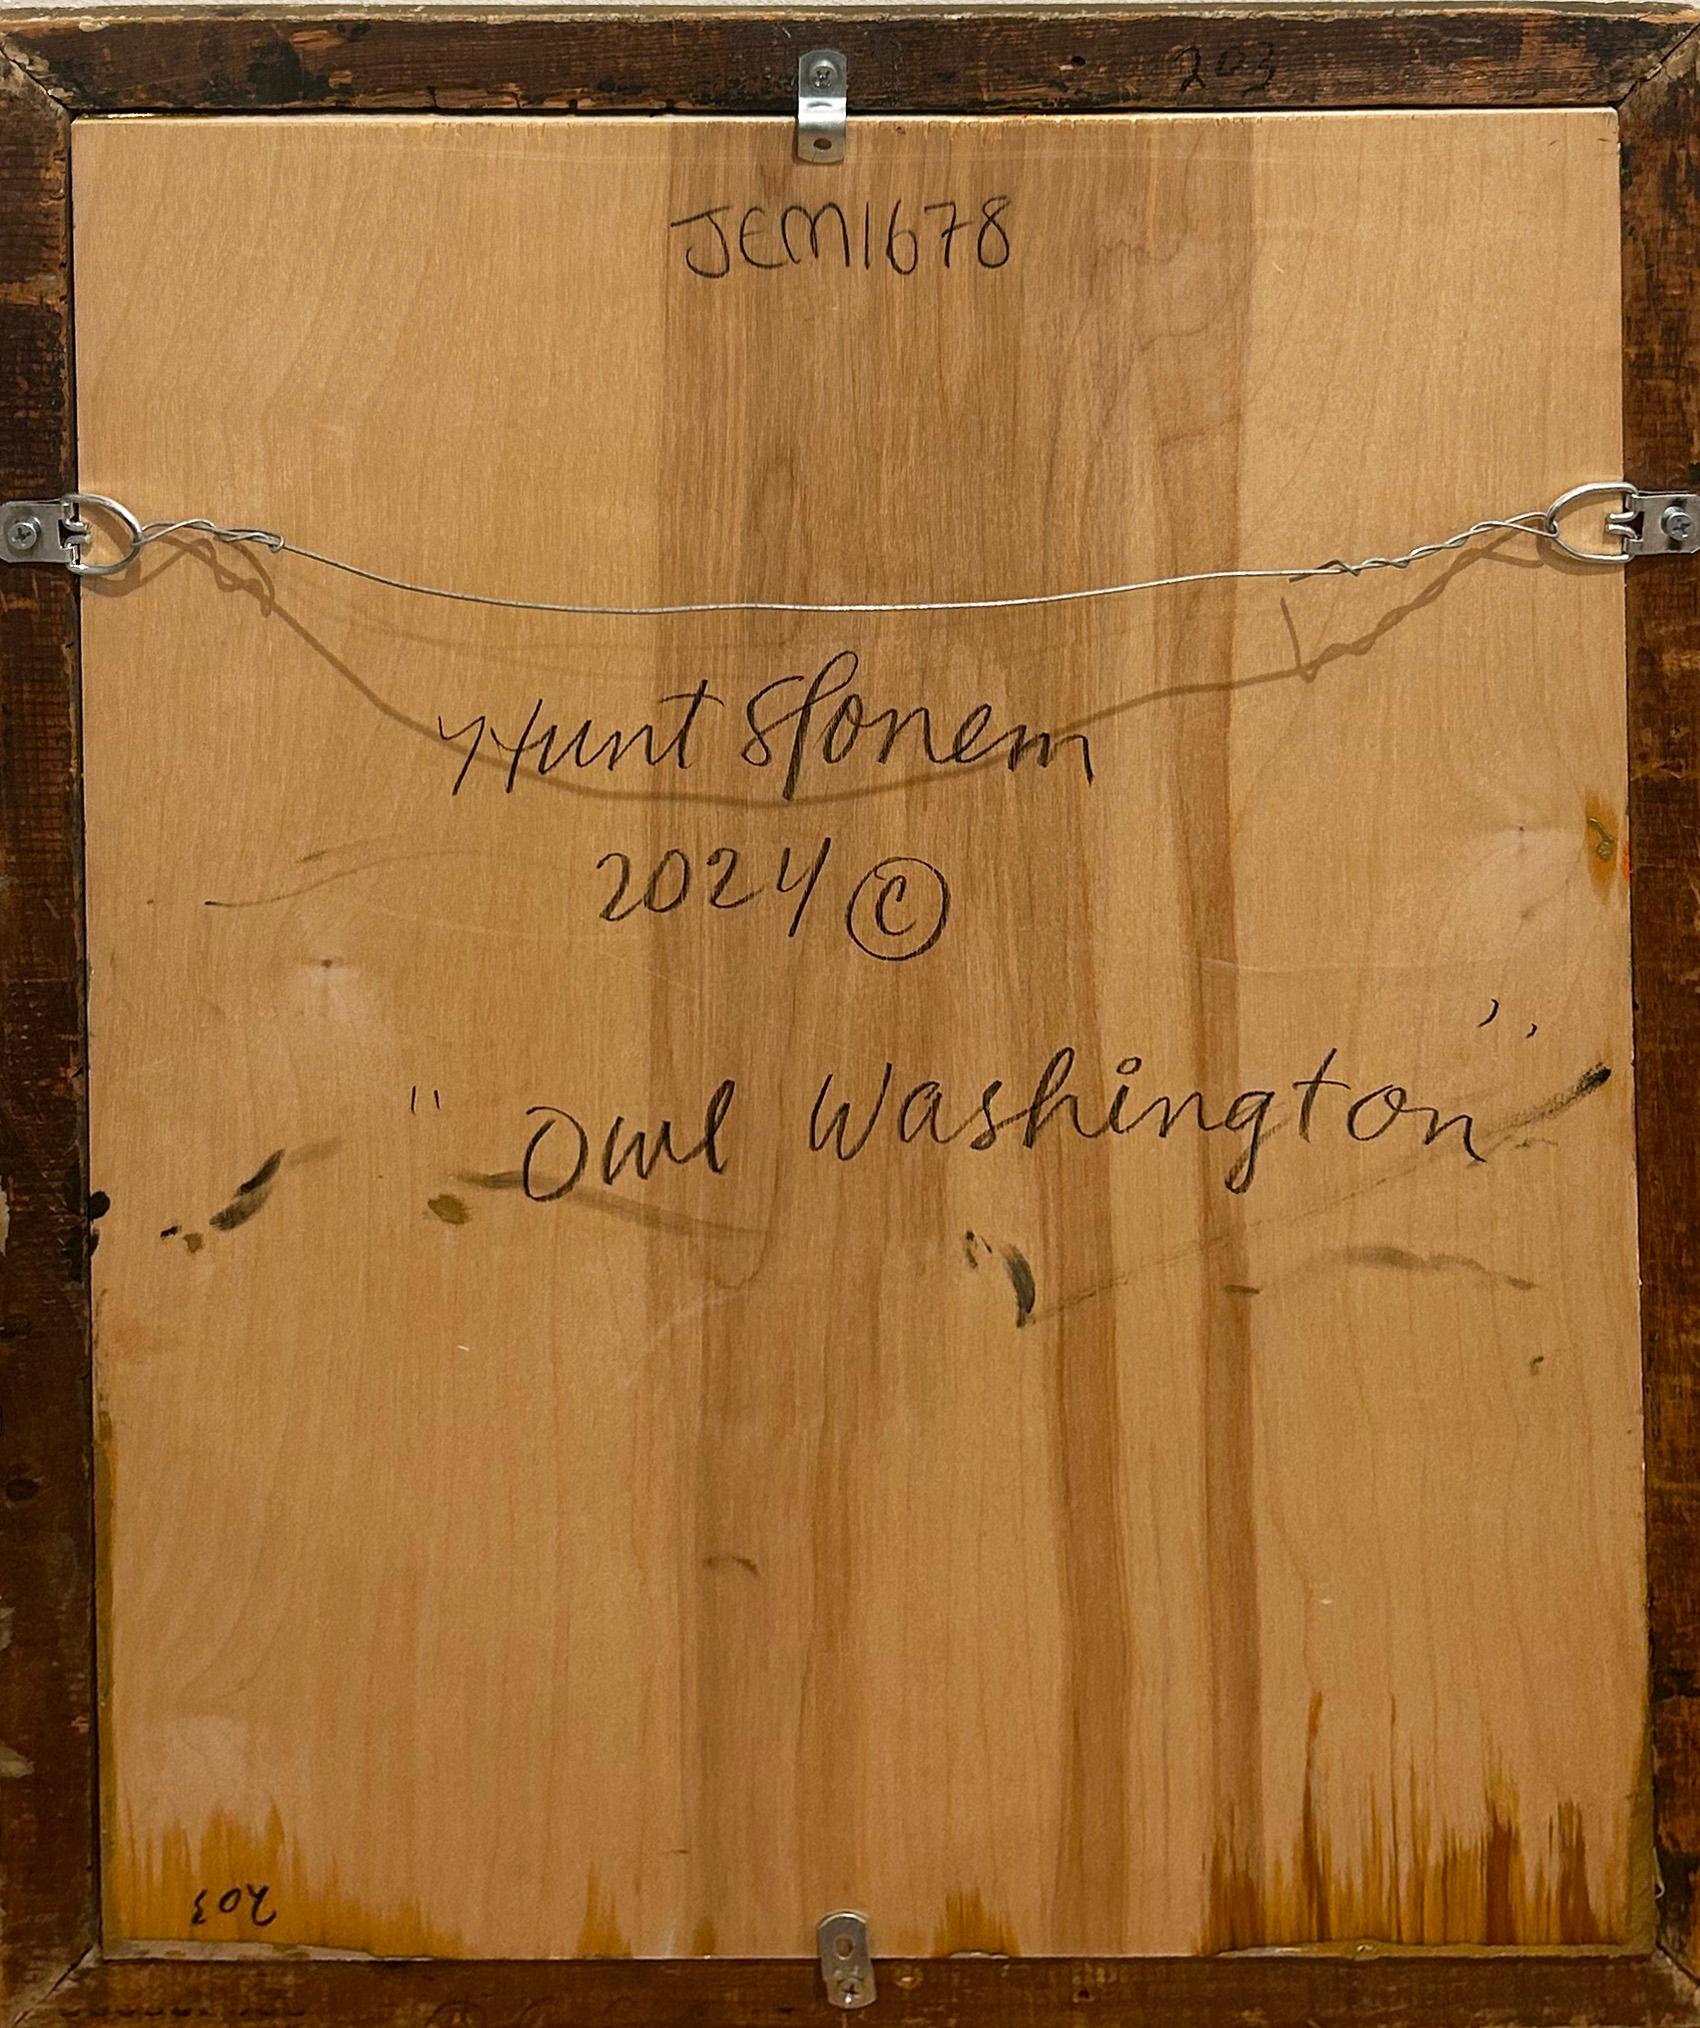 203
JEM1678
Hunt Slonem
2024 ©
"Owl Washington"
203